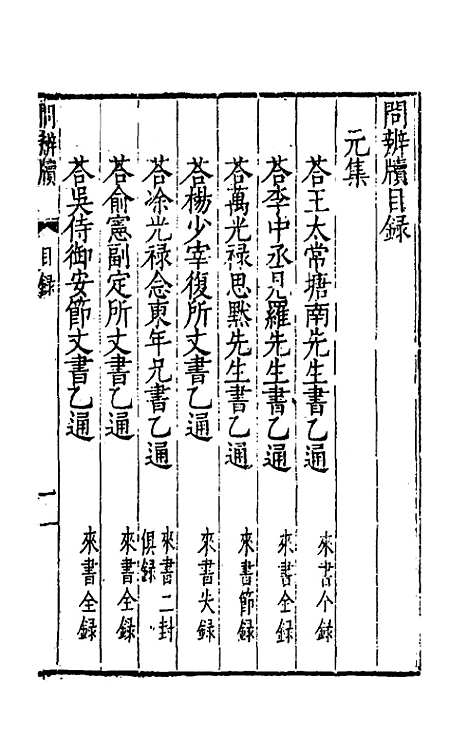 問辨牘目錄
元集
荅王太常塘南先生書乙通 來書全錄
荅李中丞見羅先生書乙通 來書全錄
荅萬光祿思默先生書乙通 來書節錄
荅楊少宰復所丈書乙通 來書失錄
荅凃光祿念東年兄書乙通 來書二封俱錄
荅俞憲副定所丈書乙通 來書全錄
荅吳侍御安節丈書乙通 來書全錄
問辨牘 目錄 一